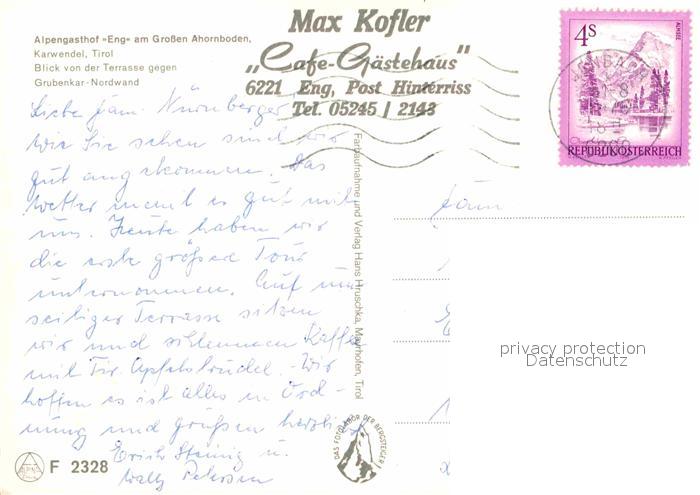 Alpengasthof »Eng« am Großen Ahornboden,
Karwendel, Tirol
Blick von der Terrasse gegen
Grubenkar-Nordwand
Max Kofler
„Cafe-Gästehaus"
6221 Eng, Post Hinterriss
Tel. 05245 / 2143
4S
ALMSEE
REPUBLIK ÖSTERREICH
Liebe Fam. Nürnberger
Wie Sie sehen sind wir
gut angekommen. Das
Wetter meint es gut mit
uns. Heute haben wir
die erste größere Tour
unternommen. Auf
seitiger Terrasse sitzen
wir und schlemmen Kaffee
mit Tir. Apfelstrudel. Wir
hoffen es ist alles in Ord-
nung und grüßen herzlich
Erich u.
Wally Petersen
Fam
Farbaufnahme und Verlag Hans Hruschka, Mayrhofen, Tirol
DAS FOTOLABOR DER BERGSTEIGER
F 2328
privacy protection
Datenschutz